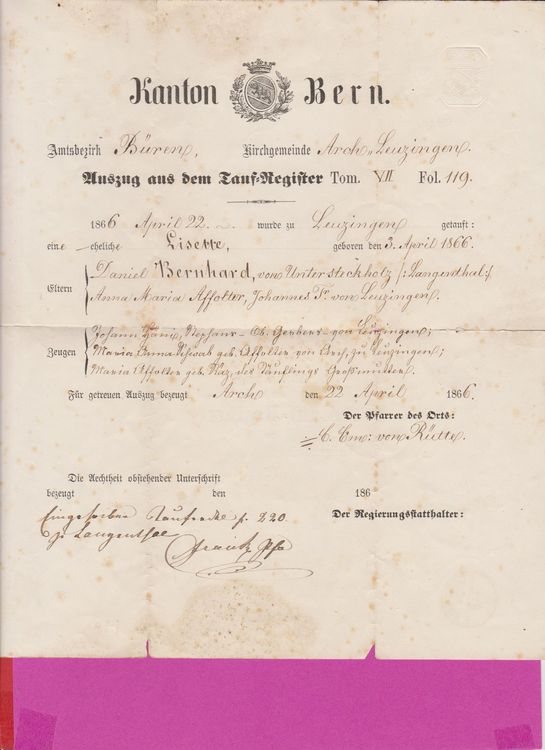 Kanton Bern.
Amtsbezirk Büren, Kirchgemeinde Arch-Leuzingen.
Auszug aus dem Tauf-Register Tom. VII Fol. 119.
1866 April 22. wurde zu Leuzingen getauft:
eine eheliche Lisette, geboren den 3. April 1866.
Eltern
Daniel Bernhard, von Untersteckholz /:Langenthal:/
Anna Maria Affolter, Johannes Tr. von Leuzingen.
Zeugen
Johann von Leuzingen;
Maria Anna Schwab geb. Affolter von Arch, zu Leuzingen;
Maria Affolter geb. des Täuflings Großmutter.
Für getreuen Auszug bezeugt Arch den 22 April 1866.
Der Pfarrer des Orts:
C. Em: von Rütte.
Die Aechtheit obstehender Unterschrift
bezeugt den 186
Der Regierungsstatthalter:
Eingeschrieben Taufrodel p. 220.
zu Langenthal